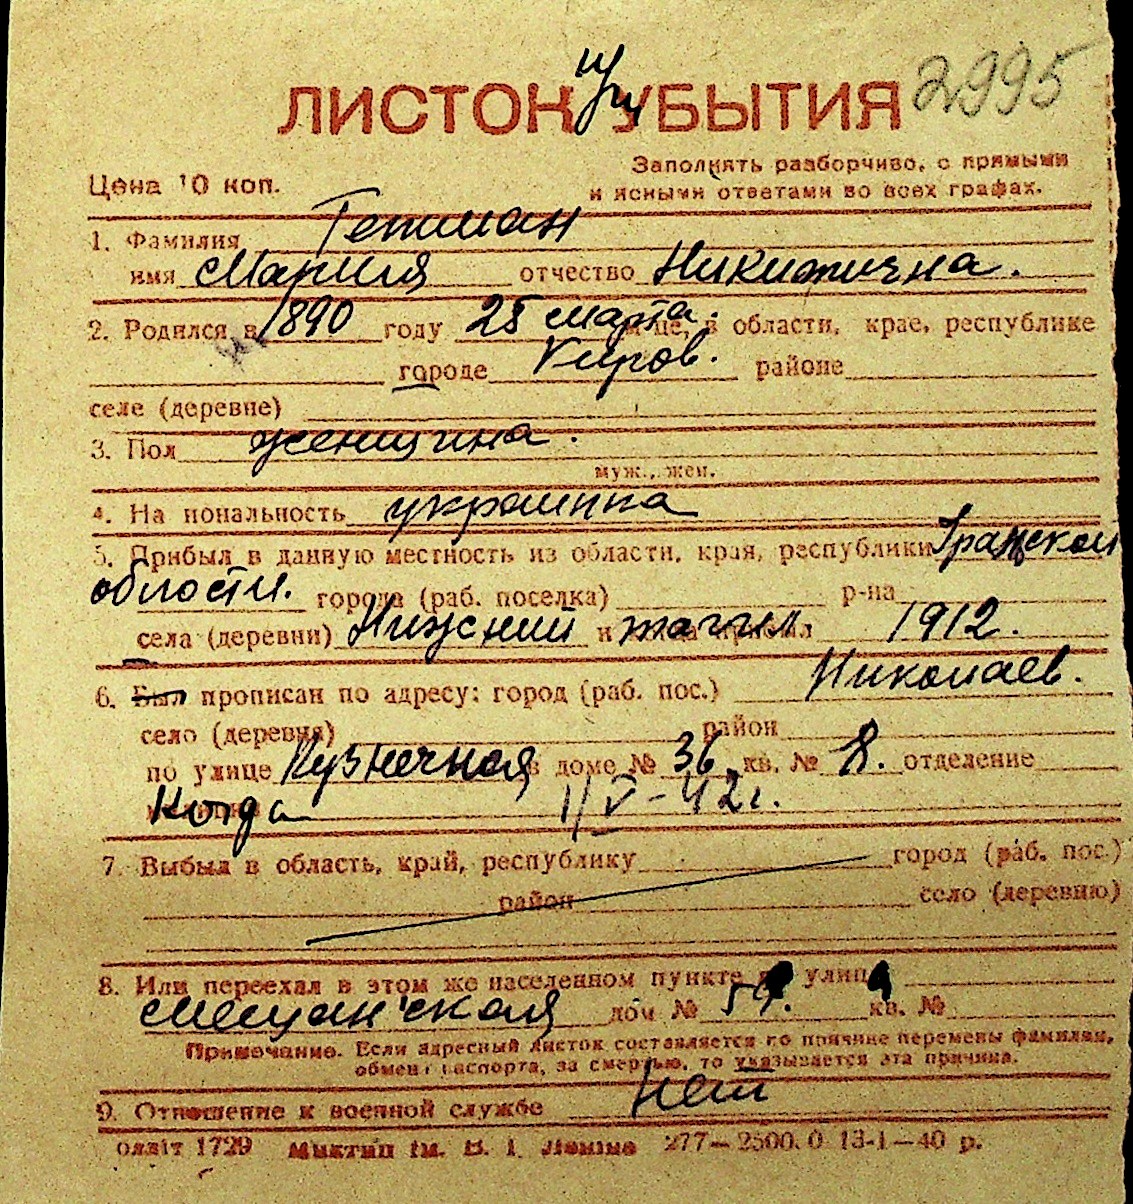 ЛИСТОК УБЫТИЯ 2995
Цена 10 коп.
Заполнять разборчиво, с прямыми
и ясными ответами во всех графах.
1. Фамилия Гетман
имя Мария отчество Никитична.
2. Родился в 1890 году 25 марта. м-це, в области, крае, республике
городе Киров. районе
селе (деревне)
3. Пол женщина.
муж., жен.
4. На иональность украинка
5. Прибыл в данную местность из области, края, республики
области. города (раб. поселка) р-на
села (деревни) Нижний тагил 1912.
6. Был прописан по адресу: город (раб. пос.) Николаев.
село (деревня) район
по улице Кузнечная в доме № 36 кв. № 8. отделение
Когда 1/V-42г.
7. Выбыл в область, край, республику город (раб. пос.)
район село (деревню)
8. Или переехал в этом же населенном пункте улица
Мещанская дом № 59. кв. №
Примечание. Если адресный листок составляется по причине перемены фамилии,
обмен паспорта, за смертью, то указывается эта причина.
9. Отношение к военной службе Нет
оллiт 1729 Миктип iм. В. I. Ленiна 277—2500. 0 13-1—40 р.